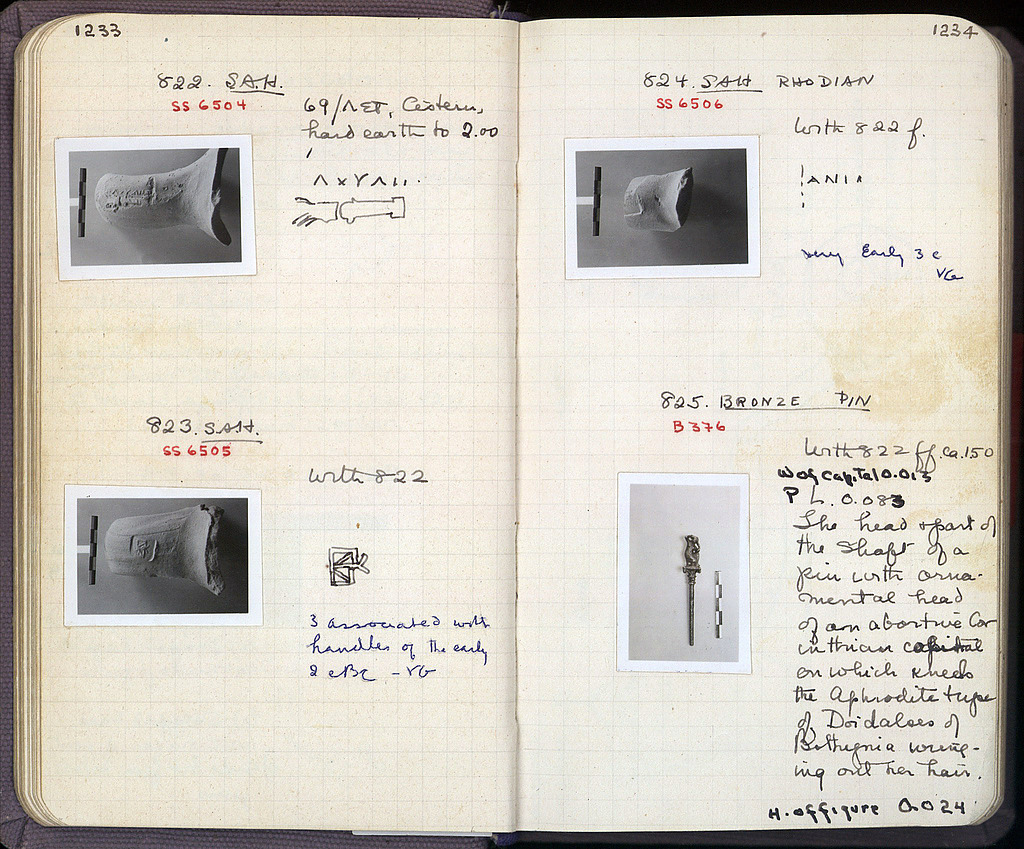 1233
822. S.A.H.
SS 6504
69/ΛΣΤ, Cistern,
hard earth to 2.00
823. S.A.H.
SS 6505
with 822
3 associated with
handles of the early
2 c BC - VG
1234
824. SAH RHODIAN
SS 6506
With 822 f.
ANI
very Early 3 c
VG
825. BRONZE PIN
B 376
With 822 ff. ca. 150
W of capital 0.013
P L. 0.083
The head & part of
the shaft of a
pin with orna-
mental head
of an abortive Cor
inthian capital
on which kneels
the Aphrodite type
of Doidalses of
Bithynia wring-
ing out her hair.
H. of figure 0.024